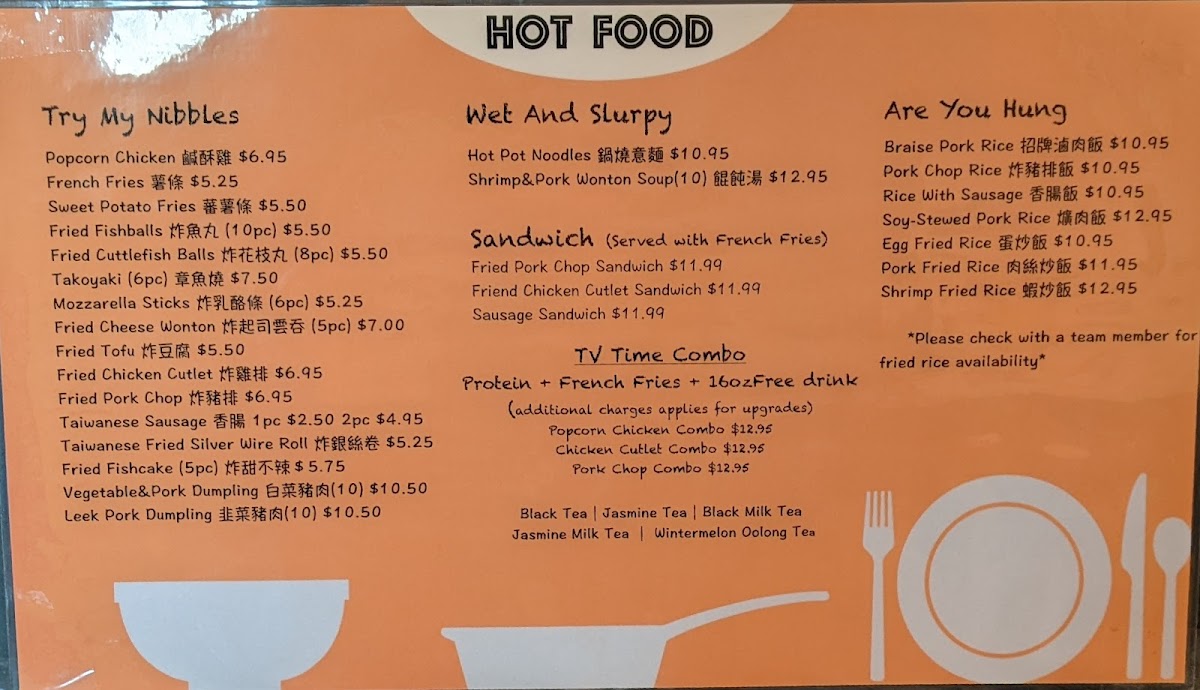 HOT FOOD
Try My Nibbles
Popcorn Chicken 鹹酥雞 $6.95
French Fries 薯條 $5.25
Sweet Potato Fries 蕃薯條 $5.50
Fried Fishballs 炸魚丸 (10pc) $5.50
Fried Cuttlefish Balls 炸花枝丸 (8pc) $5.50
Takoyaki (6pc) 章魚燒 $7.50
Mozzarella Sticks 炸乳酪條 (6pc) $5.25
Fried Cheese Wonton 炸起司雲吞 (5pc) $7.00
Fried Tofu 炸豆腐 $5.50
Fried Chicken Cutlet 炸雞排 $6.95
Fried Pork Chop 炸豬排 $6.95
Taiwanese Sausage 香腸 1pc $2.50 2pc $4.95
Taiwanese Fried Silver Wire Roll 炸銀絲卷 $5.25
Fried Fishcake (5pc) 炸甜不辣 $5.75
Vegetable&Pork Dumpling 白菜豬肉(10) $10.50
Leek Pork Dumpling 韭菜豬肉(10) $10.50
Wet And Slurpy
Hot Pot Noodles 鍋燒意麵 $10.95
Shrimp&Pork Wonton Soup(10) 餛飩湯 $12.95
Sandwich (Served with French Fries)
Fried Pork Chop Sandwich $11.99
Friend Chicken Cutlet Sandwich $11.99
Sausage Sandwich $11.99
TV Time Combo
Protein + French Fries + 16ozFree drink
(additional charges applies for upgrades)
Popcorn Chicken Combo $12.95
Chicken Cutlet Combo $12.95
Pork Chop Combo $12.95
Black Tea | Jasmine Tea | Black Milk Tea
Jasmine Milk Tea | Wintermelon Oolong Tea
Are You Hung
Braise Pork Rice 招牌滷肉飯 $10.95
Pork Chop Rice 炸豬排飯 $10.95
Rice With Sausage 香腸飯 $10.95
Soy-Stewed Pork Rice 爌肉飯 $12.95
Egg Fried Rice 蛋炒飯 $10.95
Pork Fried Rice 肉絲炒飯 $11.95
Shrimp Fried Rice 蝦炒飯 $12.95
*Please check with a team member for
fried rice availability*